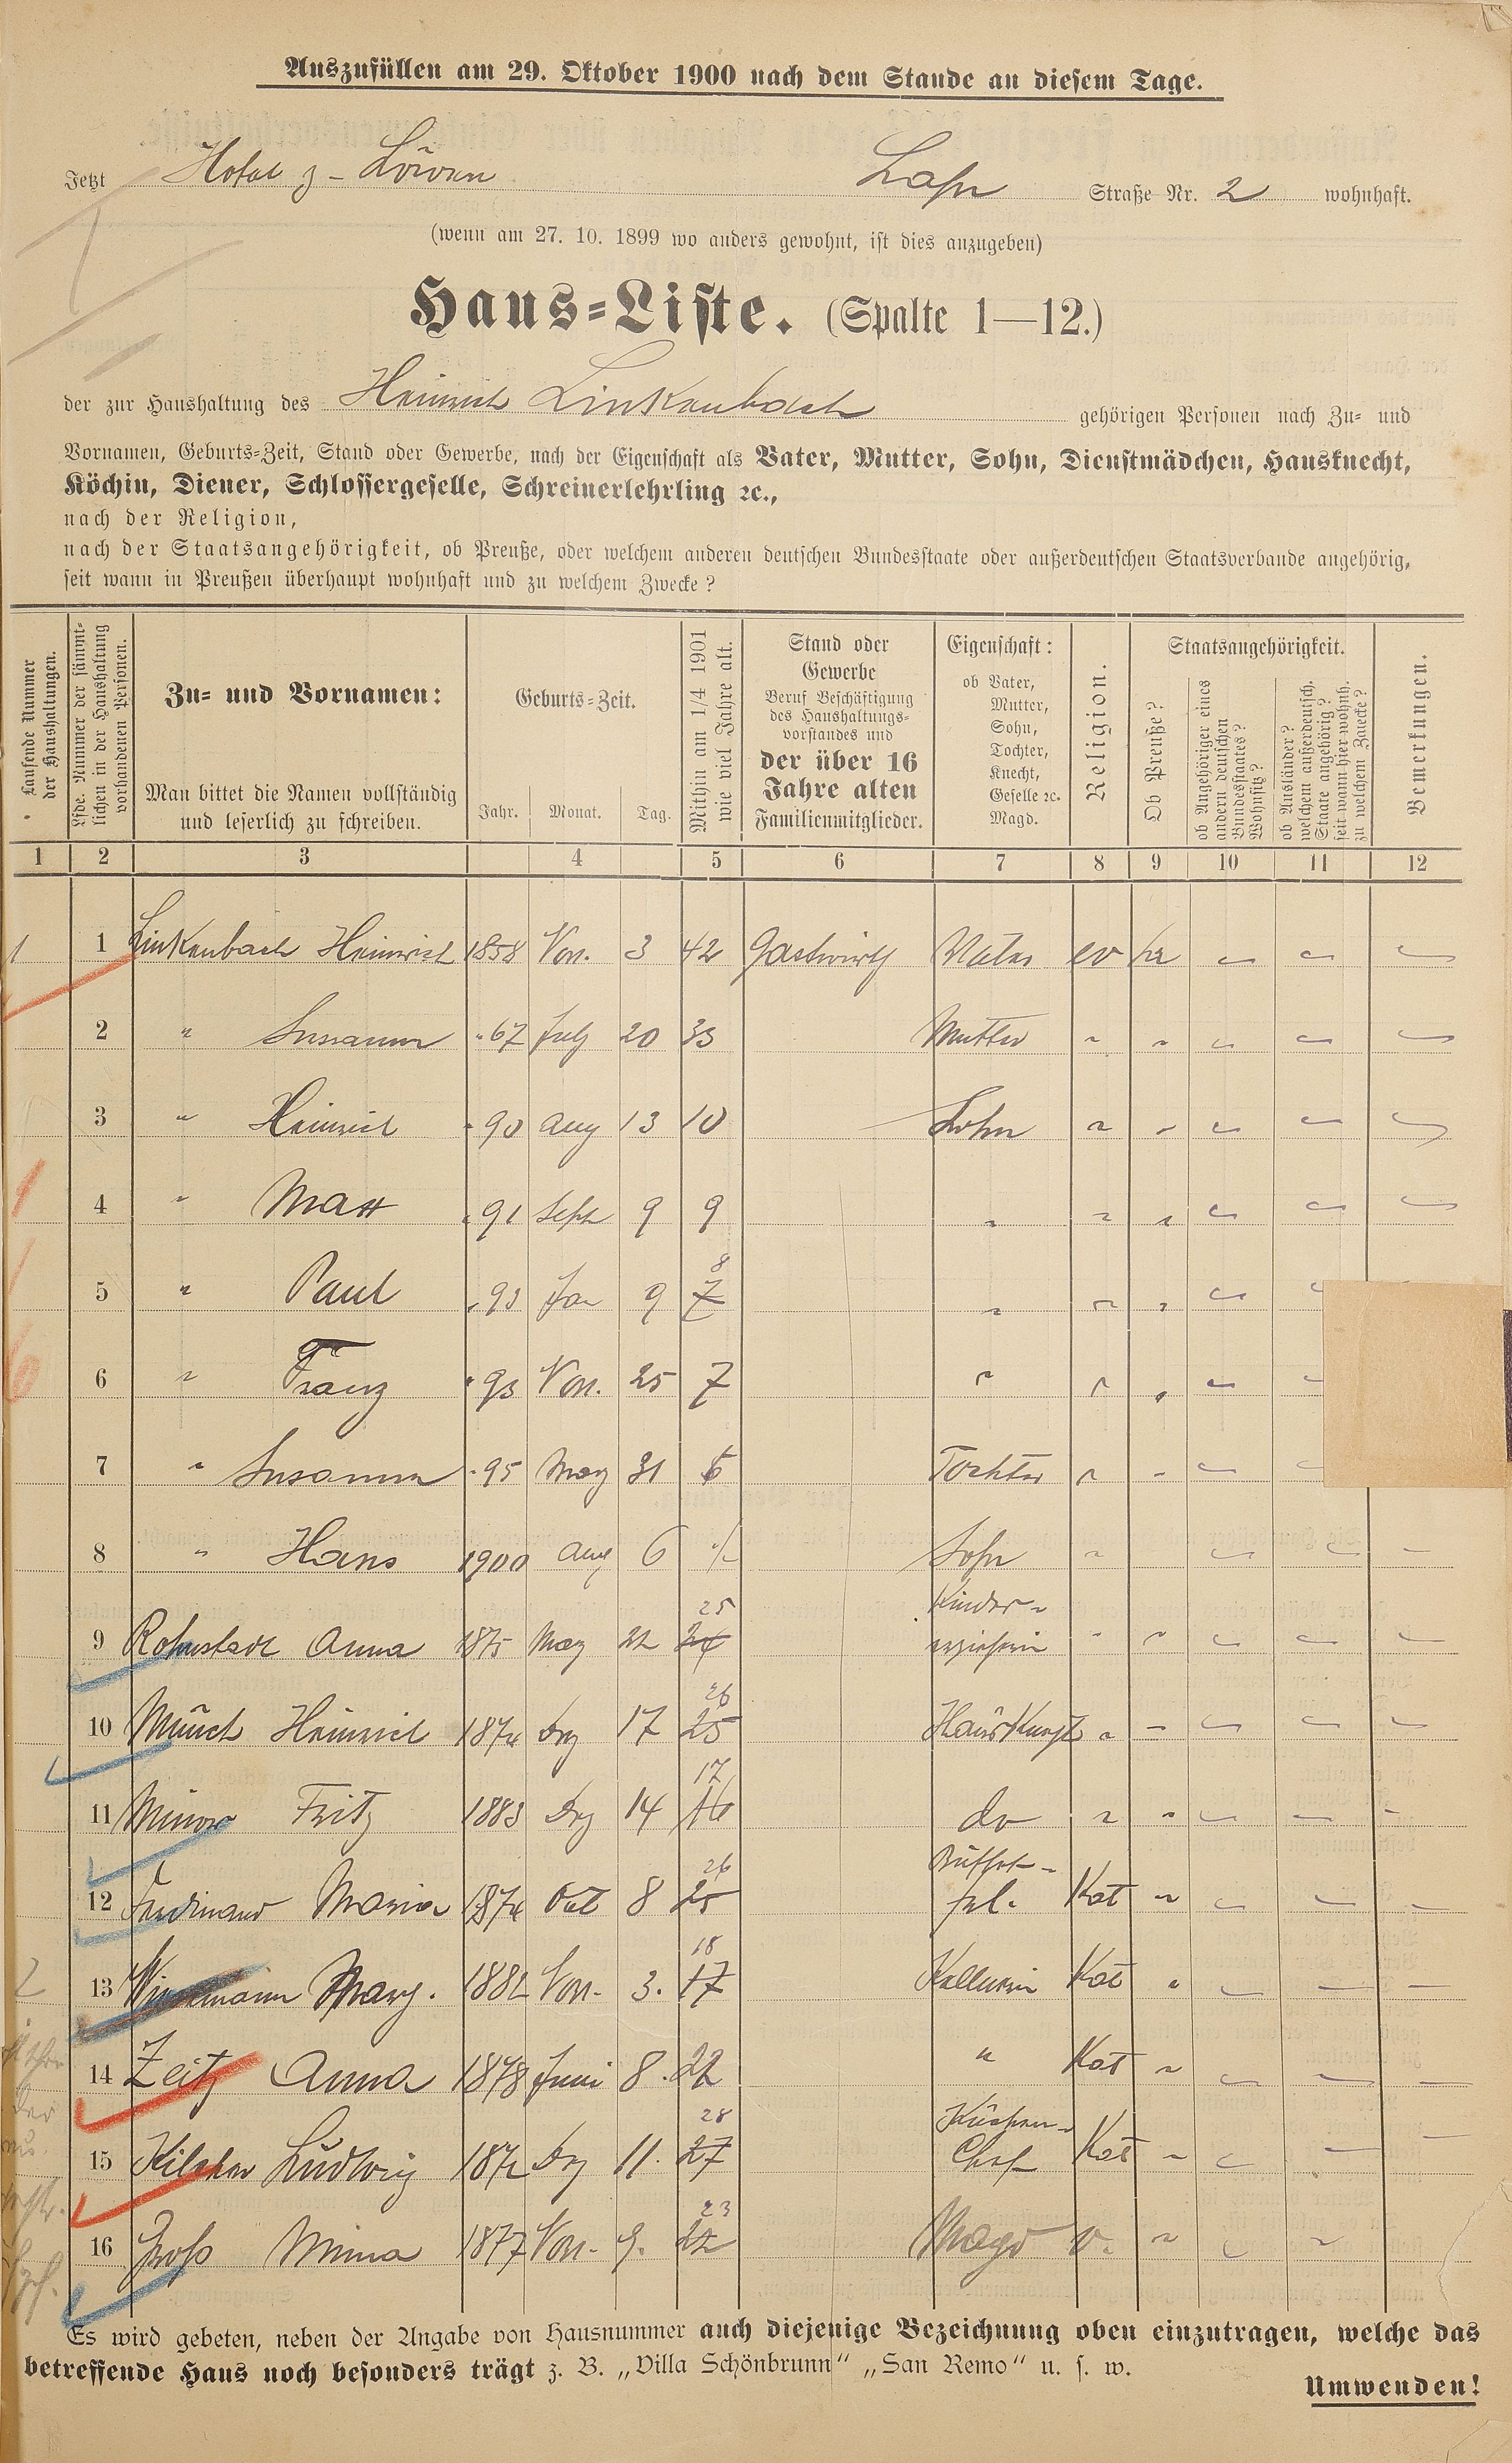 Auszufüllen am 29. Oktober 1900 nach dem Stande an diesem Tage.
Jetzt Hotel z. Löwen Lahn Straße Nr. 2 wohnhaft.
(wenn am 27. 10. 1899 wo anders gewohnt, ist dies anzugeben)
Haus=Liste. (Spalte 1—12.)
der zur Haushaltung des Heinrich Linkenbach gehörigen Personen nach Zu= und
Vornamen, Geburts=Zeit, Stand oder Gewerbe, nach der Eigenschaft als Vater, Mutter, Sohn, Dienstmädchen, Hausknecht,
Köchin, Diener, Schlossergeselle, Schreinerlehrling ꝛc.,
nach der Religion,
nach der Staatsangehörigkeit, ob Preuße, oder welchem anderen deutschen Bundesstaate oder außerdeutschen Staatsverbande angehörig,
seit wann in Preußen überhaupt wohnhaft und zu welchem Zwecke?
Laufende Nummer
der Haushaltungen.
Lfde. Nummer der sämmt-
lichen in der Haushaltung
vorhandenen Personen.
Zu= und Vornamen:
Man bittet die Namen vollständig
und leserlich zu schreiben.
Geburts=Zeit.
Jahr. Monat. Tag.
Mithin am 1/4 1901
wie viel Jahre alt.
Stand oder
Gewerbe
Beruf Beschäftigung
des Haushaltungs=
vorstandes und
der über 16
Jahre alten
Familienmitglieder.
Eigenschaft:
ob Vater,
Mutter,
Sohn,
Tochter,
Knecht,
Geselle ꝛc.
Magd.
Religion.
Staatsangehörigkeit.
Ob Preuße?
ob Angehöriger eines
andern deutschen
Bundesstaates?
Wohnsitz?
ob Ausländer?
welchem außerdeutsch.
Staate angehörig?
seit wann hier wohnh.
zu welchem Zwecke?
Bemerkungen.
1 2 3 4 5 6 7 8 9 10 11 12
1 1 Linkenbach Heinrich 1858 Nov. 3 42 Gastwirth Vater ev Pr
2 " Susanna " 67 July 20 33 Mutter " "
3 " Heinrich " 90 Aug 13 10 Sohn " "
4 " Max " 91 Sept 9 9 " " "
8
5 " Paul " 93 Jan 9 7 " " "
6 " Franz " 93 Nov. 25 7 " " "
7 " Susanna " 95 May 31 5 Tochter " "
8 " Hans 1900 Aug 6 ./. Sohn "
25 Kinder-
9 Anna 1875 May 22 24 erzieherin " "
26
10 Münch Heinrich 1874 Dez 17 25 Hausknecht " "
17
11 Fritz 1883 Dez 14 16 do " "
26 Büffet-
12 Ferdinand Maria 1874 Oct 8 25 frl. Kat "
18
13 Marg. 1882 Nov. 3. 17 Kellnerin Kat "
14 Zeitz Anna 1878 Juni 8. 22 " Kat "
28 Küchen-
15 Ludwig 1872 Dez 11. 27 Chef Kat "
23
16 Groß Minna 1877 Nov. 9. 22 Magd "
Es wird gebeten, neben der Angabe von Hausnummer auch diejenige Bezeichnung oben einzutragen, welche das
betreffende Haus noch besonders trägt z. B. „Villa Schönbrunn“ „San Remo“ u. s. w.
Umwenden!